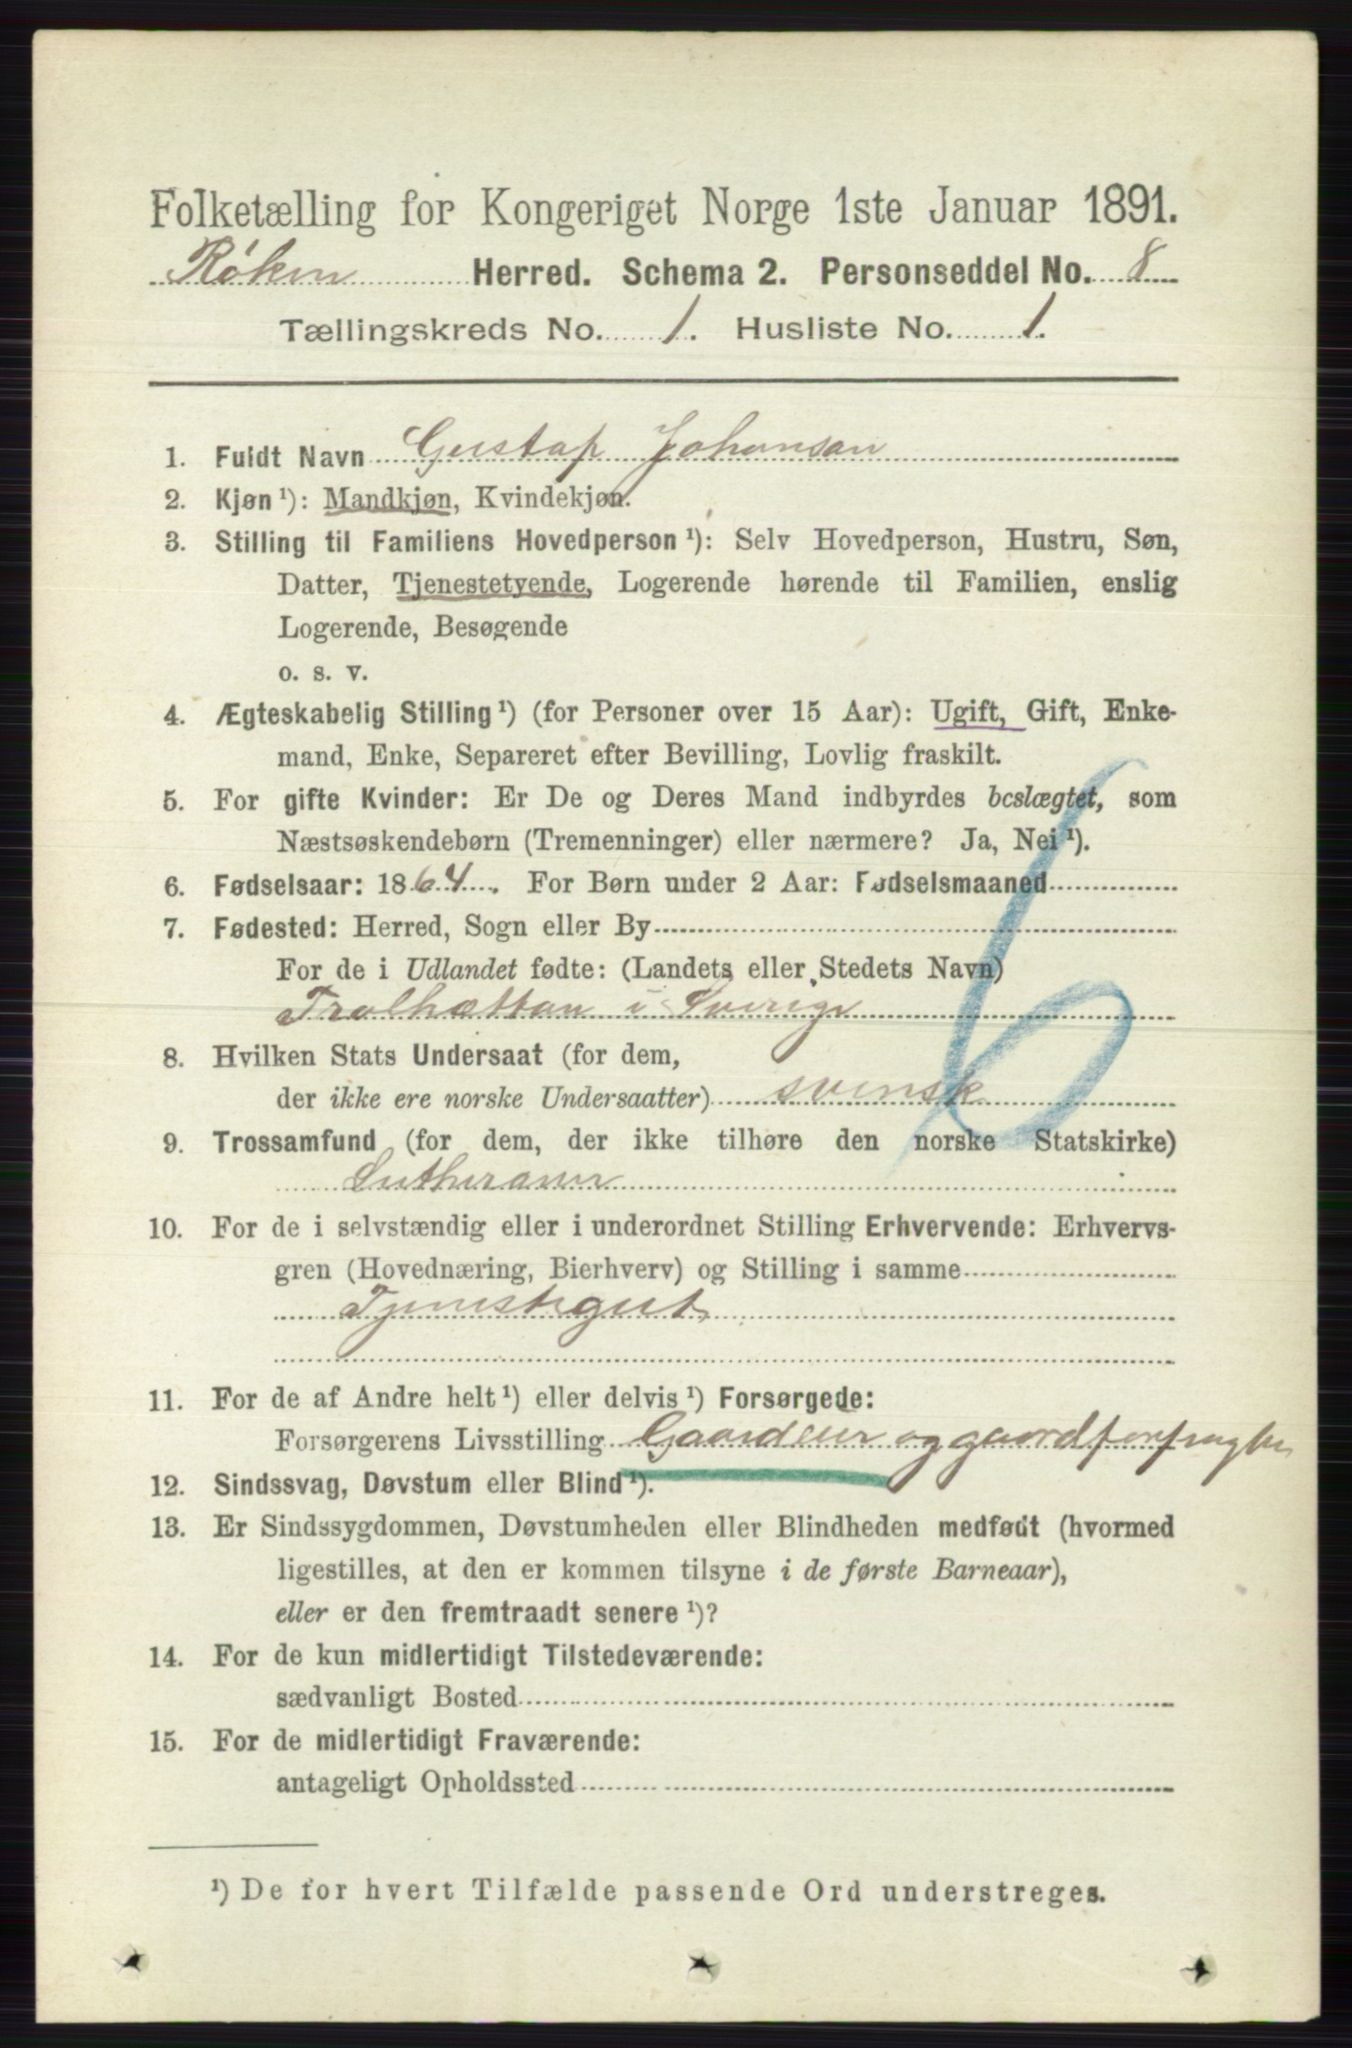 Folketælling for Kongeriget Norge 1ste Januar 1891.
Røken Herred. Schema 2. Personseddel No. 8
Tællingskreds No. 1. Husliste No. 1.
1. Fuldt Navn Gustaf Johansan
2. Kjøn ¹): Mandkjøn, Kvindekjøn.
3. Stilling til Familiens Hovedperson ¹): Selv Hovedperson, Hustru, Søn,
Datter, Tjenestetyende, Logerende hørende til Familien, enslig
Logerende, Besøgende
o. s. v.
4. Ægteskabelig Stilling ¹) (for Personer over 15 Aar): Ugift, Gift, Enke-
mand, Enke, Separeret efter Bevilling, Lovlig fraskilt.
5. For gifte Kvinder: Er De og Deres Mand indbyrdes beslægtet, som
Næstsøskendebørn (Tremenninger) eller nærmere? Ja, Nei ¹).
6. Fødselsaar: 1864. For Børn under 2 Aar: Fødselsmaaned
7. Fødested: Herred, Sogn eller By
For de i Udlandet fødte: (Landets eller Stedets Navn)
Tralhættan i Sverige
8. Hvilken Stats Undersaat (for dem,
der ikke ere norske Undersaatter) svensk
6
9. Trossamfund (for dem, der ikke tilhøre den norske Statskirke)
Lutheraner
10. For de i selvstændig eller i underordnet Stilling Erhvervende: Erhvervs-
gren (Hovednæring, Bierhverv) og Stilling i samme
Tjenestegut
11. For de af Andre helt ¹) eller delvis ¹) Forsørgede:
Forsørgerens Livsstilling Gaardeier og
12. Sindssvag, Døvstum eller Blind ¹).
13. Er Sindssygdommen, Døvstumheden eller Blindheden medfødt (hvormed
ligestilles, at den er kommen tilsyne i de første Barneaar),
eller er den fremtraadt senere ¹)?
14. For de kun midlertidigt Tilstedeværende:
sædvanligt Bosted
15. For de midlertidigt Fraværende:
antageligt Opholdssted
¹) De for hvert Tilfælde passende Ord understreges.